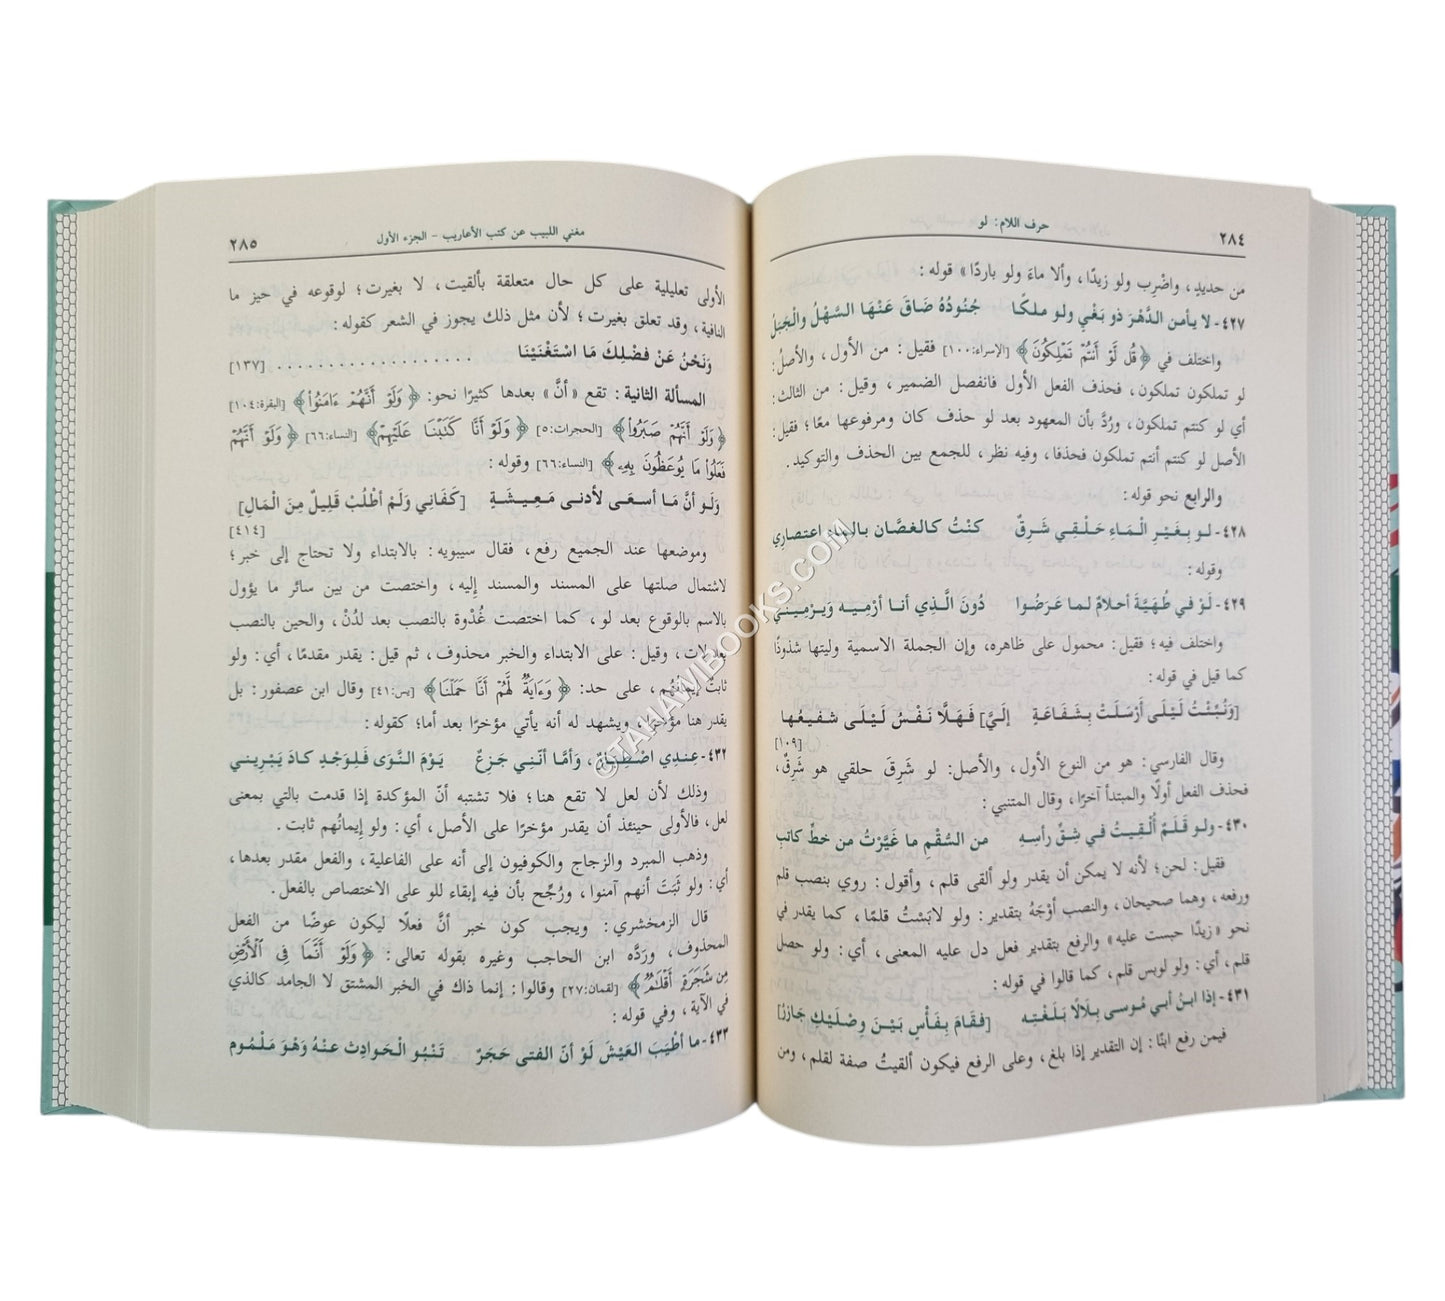 ٢٨٤
حرف اللام: لو
من حديدٍ، واضْرِب ولو زيدًا، وألا ماءَ ولو باردًا» قوله:
٤٢٧- لا يأمن الدَّهْرَ ذو بَغْيٍ ولو ملكًا جُنُودُهُ ضَاقَ عَنْهَا السَّهْلُ والْجَبَلُ
واختلف في ﴿قُل لَّوْ أَنتُمْ تَمْلِكُونَ﴾ [الإسراء:١٠٠] فقيل: من الأول، والأصلُ:
لو تملكون تملكون، فحذف الفعل الأول فانفصل الضمير، وقيل: من الثالث:
أي لو كنتم تملكون، ورُدَّ بأن المعهود بعد لو حذف كان ومرفوعها معًا؛ فقيل:
الأصل لو كنتم أنتم تملكون فحذفا، وفيه نظر، للجمع بين الحذف والتوكيد.
والرابع نحو قوله:
٤٢٨- لــو بِـغَـيْـر الْـمَـاءِ حَـلْـقِـي شَـرِقٌ كـنْـتُ كـالـغـصَّـان بـالـمـاءِ اعتصارِي
وقوله:
٤٢٩- لَـوْ في طُهَيَّةَ أحـلامٌ لـمـا عَـرَضُـوا دُونَ الَّـذِي أنـا أرْمِـيـه وَيـرْمِـيـنـي
واختلف فيه؛ فقيل: محمول على ظاهره، وإن الجملة الاسمية وليتها شذوذًا
كما قيل في قوله:
[وَنُبِّئْتُ لَيْلَى أَرْسَلَتْ بِشَفَاعَةٍ إلَيَّ] فَهَلَّا نَفْسُ لَيْلَى شفيعُها
[١٠٩]
وقال الفارسي: هو من النوع الأول، والأصل: لو شَرِقَ حلقي هو شَرِقٌ،
فحذف الفعل أولًا والمبتدأ آخرًا، وقال المتنبي:
٤٣٠- ولـو قَـلَـمٌ أُلْـقِـيتُ فـي شِـقِّ رأسِـهِ من السُّقْمِ ما غَيَّرْتُ من خطِّ كاتبِ
فقيل: لحن؛ لأنه لا يمكن أن يقدر ولو ألقى قلم، وأقول: روي بنصب قلم
ورفعه، وهما صحيحان، والنصب أوْجَهُ بتقدير: ولو لابَسْتُ قلمًا، كما يقدر في
نحو «زيدًا حبست عليه» والرفع بتقدير فعل دل عليه المعنى، أي: ولو حصل
قلم، أي: ولو لوبس قلم، كما قالوا في قوله:
٤٣١- إذا ابنُ أبي مُوسى بِلَالًا بَلَغْتِهِ [فـقَـامَ بِـفَـأْسٍ بَـيْـنَ وِصْـلَـيْـكِ جَـازِرُ]
فيمن رفع ابنًا: إن التقدير إذا بلغ، وعلى الرفع فيكون ألقيتُ صفة لقلم، ومن
مغني اللبيب عن كتب الأعاريب - الجزء الأول
٢٨٥
الأولى تعليلية على كل حال متعلقة بألقيت، لا بغيرت؛ لوقوعه في حيز ما
النافية، وقد تعلق بغيرت؛ لأن مثل ذلك يجوز في الشعر كقوله:
وَنَحْنُ عَنْ فَضْلِكَ مَا اسْتَغْنَيْنَا . . . . . . . . . . . . . . . . [١٣٧]
المسألة الثانية: تقع «أنَّ» بعدها كثيرًا نحو: ﴿وَلَوْ أَنَّهُمْ ءَامَنُوا﴾ [البقرة:١٠٤]
﴿وَلَوْ أَنَّهُمْ صَبَرُوا﴾ [الحجرات:٥] ﴿وَلَوْ أَنَّا كَتَبْنَا عَلَيْهِمْ﴾ [النساء:٦٦] ﴿وَلَوْ أَنَّهُمْ
فَعَلُوا مَا يُوعَظُونَ بِهِ﴾ [النساء:٦٦] وقوله:
وَلَـو أنَّ مَـا أسـعَـى لأدنـى مَـعِـيـشَـةٍ [كَـفَـانِـي ولَـمْ أطْـلُـبْ قَـلـيـلٌ مِـنَ الْـمَـالِ]
[٤١٤]
وموضعها عند الجميع رفع، فقال سيبويه: بالابتداء ولا تحتاج إلى خبر؛
لاشتمال صلتها على المسند والمسند إليه، واختصت من بين سائر ما يؤول
بالاسم بالوقوع بعد لو، كما اختصت غُدْوة بالنصب بعد لدُنْ، والحين بالنصب
بعد لات، وقيل: على الابتداء والخبر محذوف، ثم قيل: يقدر مقدمًا، أي: ولو
ثابتٌ إيمانُهُم، على حد: ﴿وَءَايَةٌ لَّهُمْ أَنَّا حَمَلْنَا﴾ [يس:٤١] وقال ابن عصفور: بل
يقدر هنا مؤخرًا، ويشهد له أنه يأتي مؤخرًا بعد أما؛ كقوله:
٤٣٢- عِندِي اصْطِبارٌ، وَأمَّا أنَّنِي جَزِعٌ يَوْمَ النَّوَى فَلِوَجْدٍ كادَ يَبْرِيني
وذلك لأن لعل لا تقع هنا؛ فلا تشتبه أنّ المؤكدة إذا قدمت بالتي بمعنى
لعل، فالأولى حينئذ أن يقدر مؤخرًا على الأصل، أي: ولو إيمانُهم ثابت.
وذهب المبرد والزجاج والكوفيون إلى أنه على الفاعلية، والفعل مقدر بعدها،
أي: ولو ثَبَتَ أنهم آمنوا، ورُجِّح بأن فيه إبقاء للو على الاختصاص بالفعل.
قال الزمخشري: ويجب كون خبر أنَّ فعلًا ليكون عوضًا من الفعل
المحذوف، وردَّه ابن الحاجب وغيره بقوله تعالى: ﴿وَلَوْ أَنَّمَا فِى ٱلْأَرْضِ
مِن شَجَرَةٍ أَقْلَٰمٌ﴾ [لقمان:٢٧] وقالوا: إنما ذاك في الخبر المشتق لا الجامد كالذي
في الآية، وفي قوله:
٤٣٣- ما أطْيَبَ العَيْشَ لَوْ أنّ الفتى حَجَرٌ تَنْبُو الْحَوادِث عنْهُ وَهْوَ مَلْمُوم
©TAHAMIBOOKS.COM